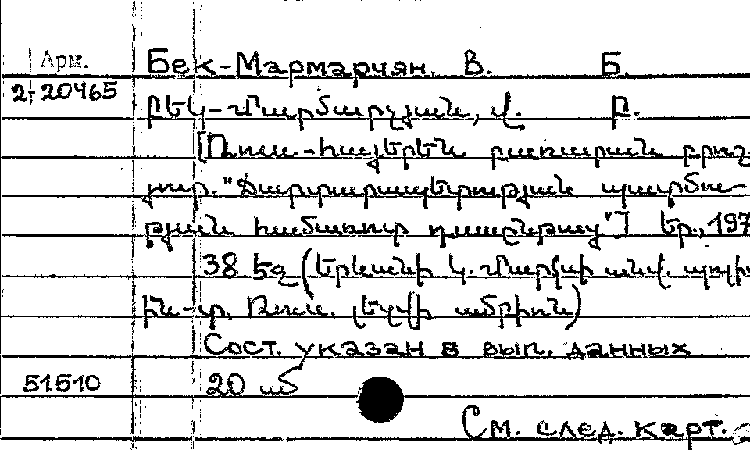 Арм. Бек-Мармарчян, В. Б.
2-20465 Բեկ-Մարմարչյան, Վ. Բ.
[Ռուս-հայերեն բառարան
"Ճարտարապետության պատմու-
թյան համառոտ դասընթաց"] Եր., 197
38 էջ (Երևանի Կ. Մարքսի անվ.
ին-տ. Ռուս. լեզվի ամբիոն)
Сост. указан в вып. данных
51510 20 
См. след. карт.